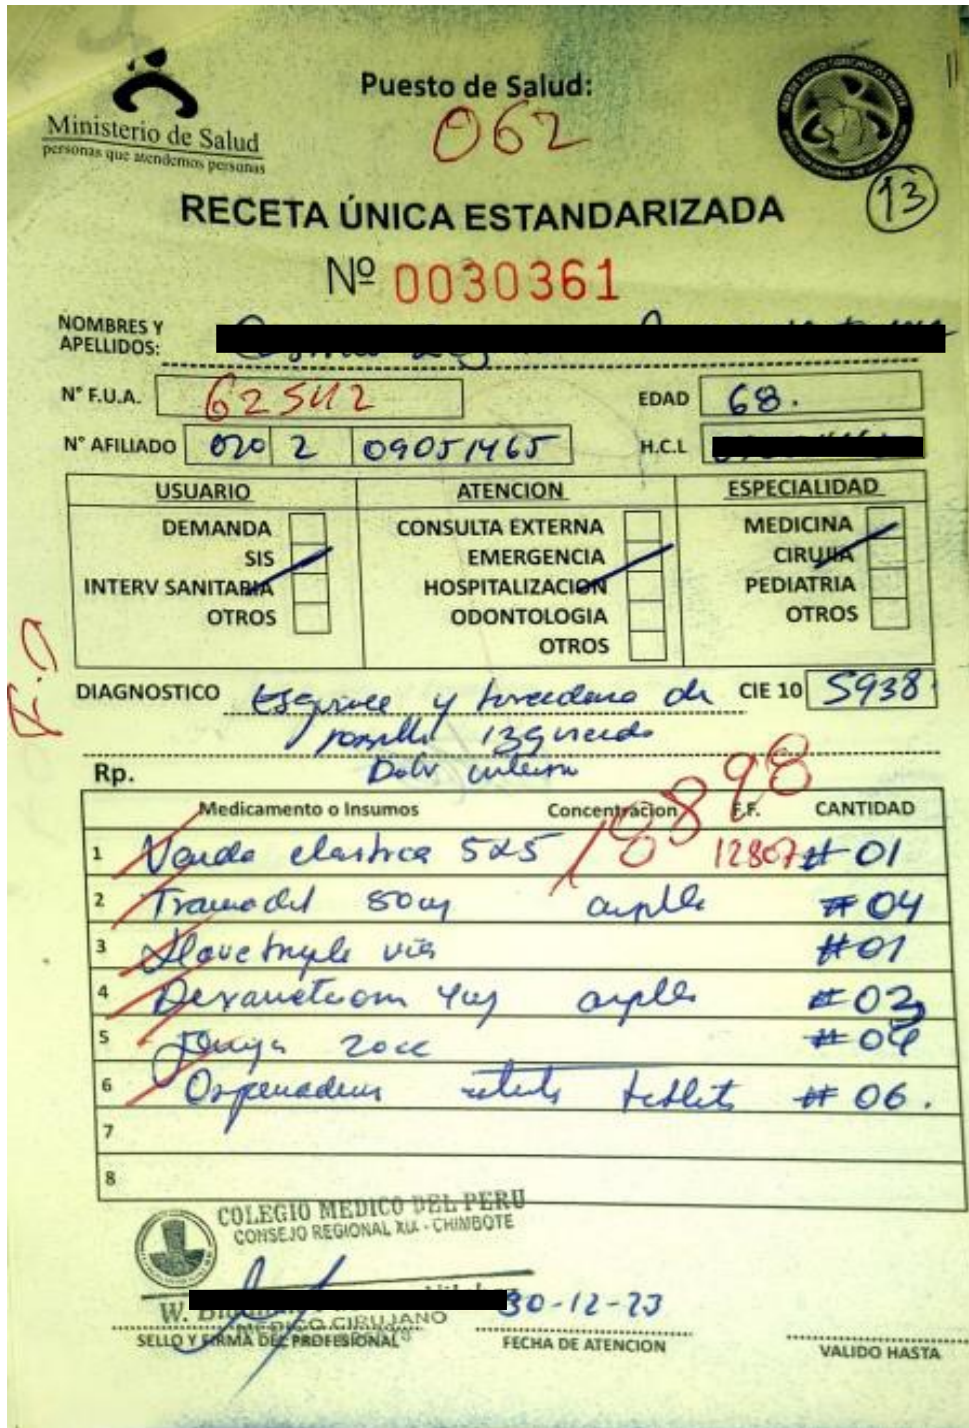 Ministerio de Salud
personas que atendemos personas
Puesto de Salud:
062
13
RECETA ÚNICA ESTANDARIZADA
Nº 0030361
NOMBRES Y
APELLIDOS:
N° F.U.A. 62542
EDAD 68.
N° AFILIADO 020 2 09051465
H.C.L
USUARIO ATENCION ESPECIALIDAD
DEMANDA CONSULTA EXTERNA MEDICINA
SIS EMERGENCIA CIRUJIA
INTERV SANITARIA HOSPITALIZACION PEDIATRIA
OTROS ODONTOLOGIA OTROS
OTROS
DIAGNOSTICO Esguince y torcedura de CIE 10 S938
izquierdo
Rp. Dolor intenso
18898
Medicamento o Insumos Concentracion F.F. CANTIDAD
1 Venda elastica 5x5 12807 # 01
2 Tramadol 50mg ampolla # 04
3 Llave triple via # 01
4 ampolla
5 20cc
6 tableta # 06.
7
8
COLEGIO MEDICO DEL PERU
CONSEJO REGIONAL XIX - CHIMBOTE
W.
30-12-23
MEDICO CIRUJANO
SELLO Y FIRMA DEL PROFESIONAL
FECHA DE ATENCION
VALIDO HASTA